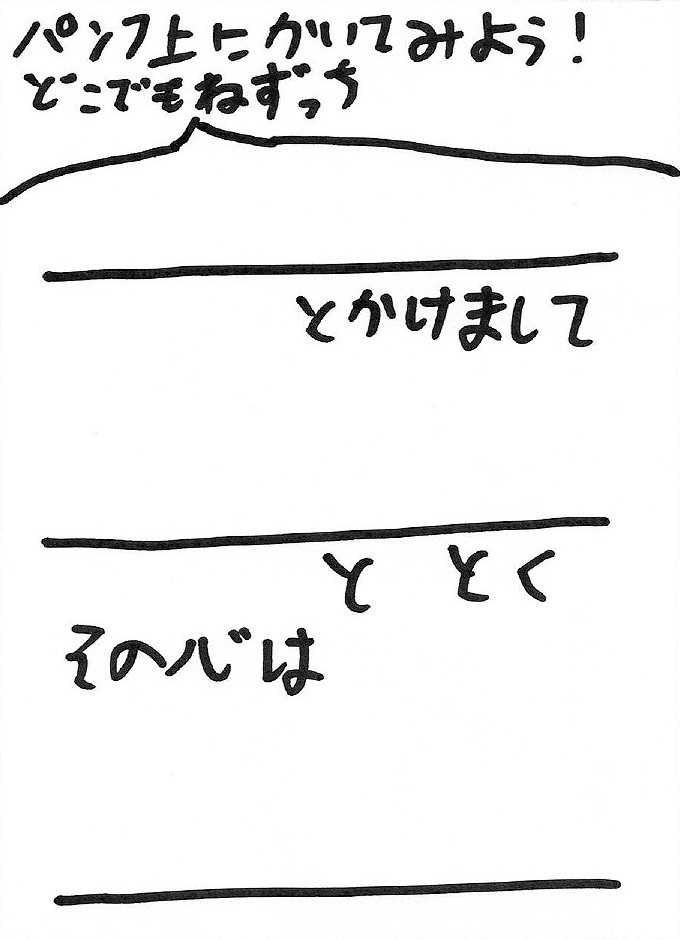 パンフ上にかいてみよう!
どこでもねずっち
とかけまして
と とく
その心は